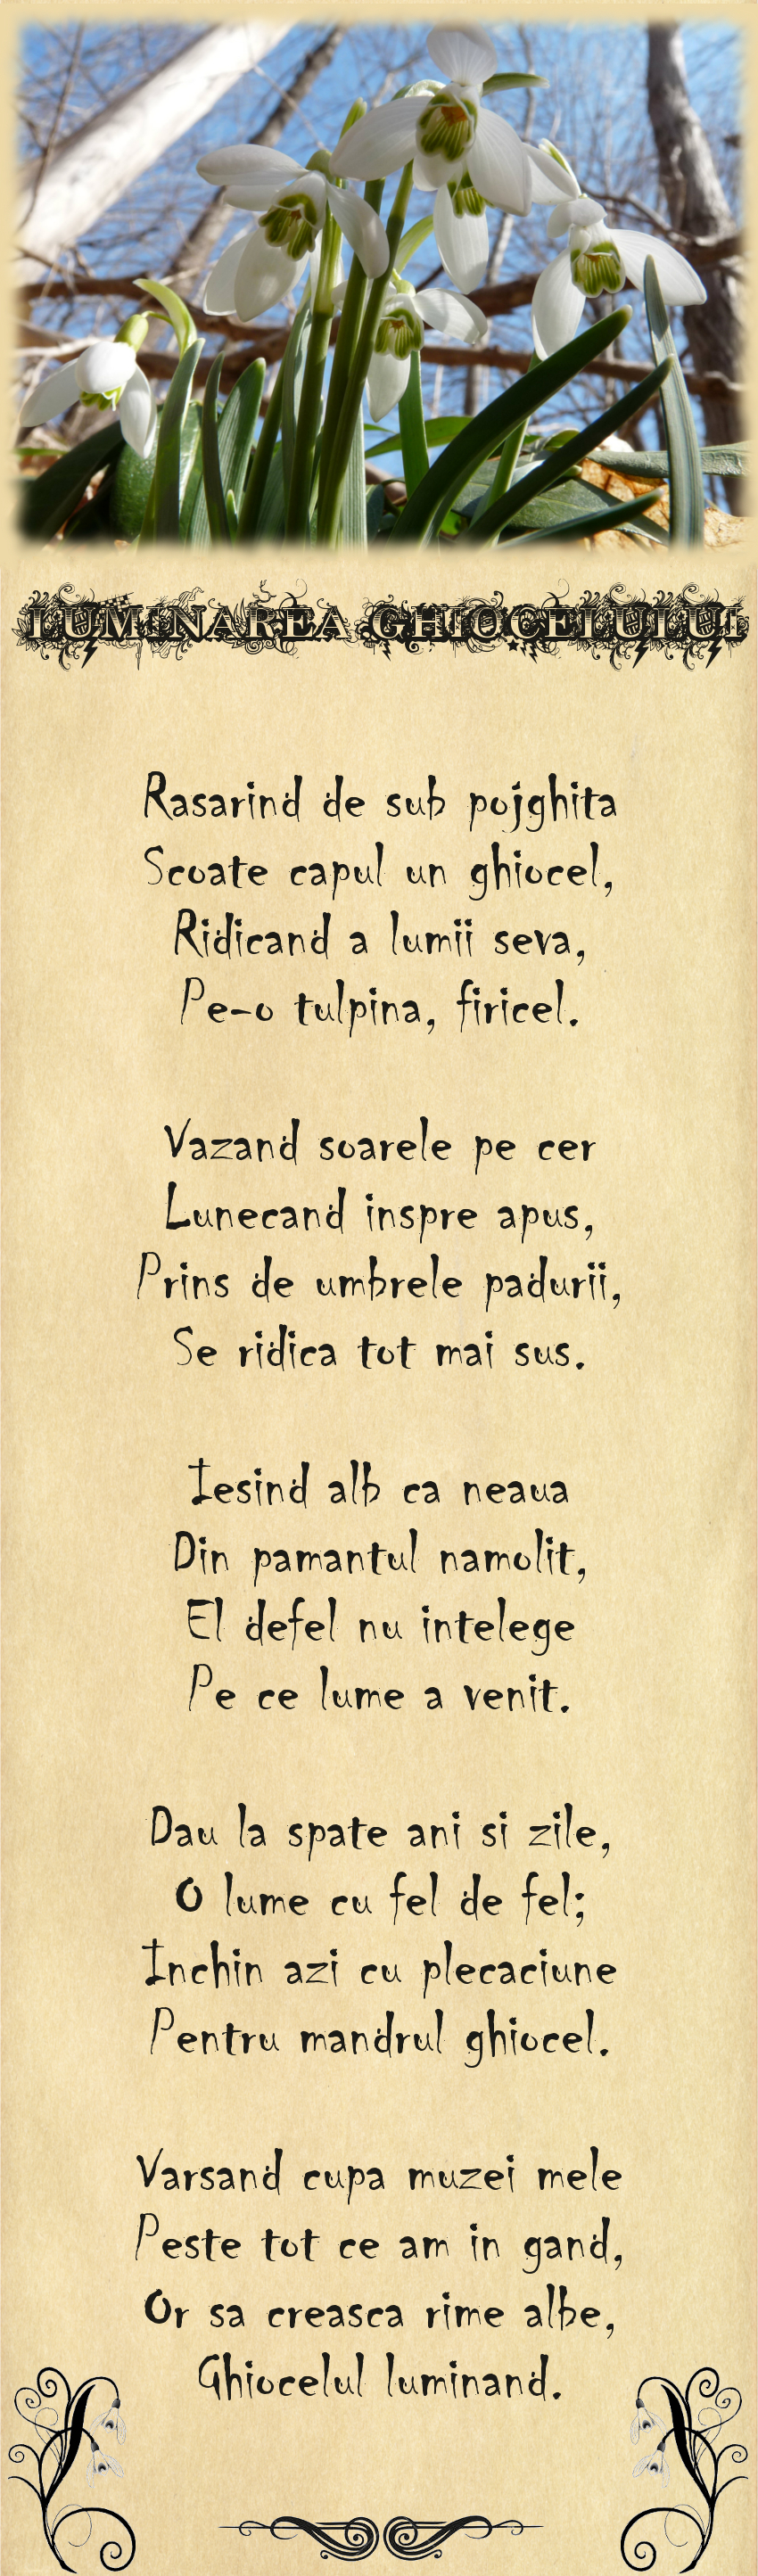 LUMINAREA GHIOCELULUI
Rasarind de sub pojghita
Scoate capul un ghiocel,
Ridicand a lumii seva,
Pe-o tulpina, firicel.
Vazand soarele pe cer
Lunecand inspre apus,
Prins de umbrele padurii,
Se ridica tot mai sus.
Iesind alb ca neaua
Din pamantul namolit,
El defel nu intelege
Pe ce lume a venit.
Dau la spate ani si zile,
O lume cu fel de fel;
Inchin azi cu plecaciune
Pentru mandrul ghiocel.
Varsand cupa muzei mele
Peste tot ce am in gand,
Or sa creasca rime albe,
Ghiocelul luminand.